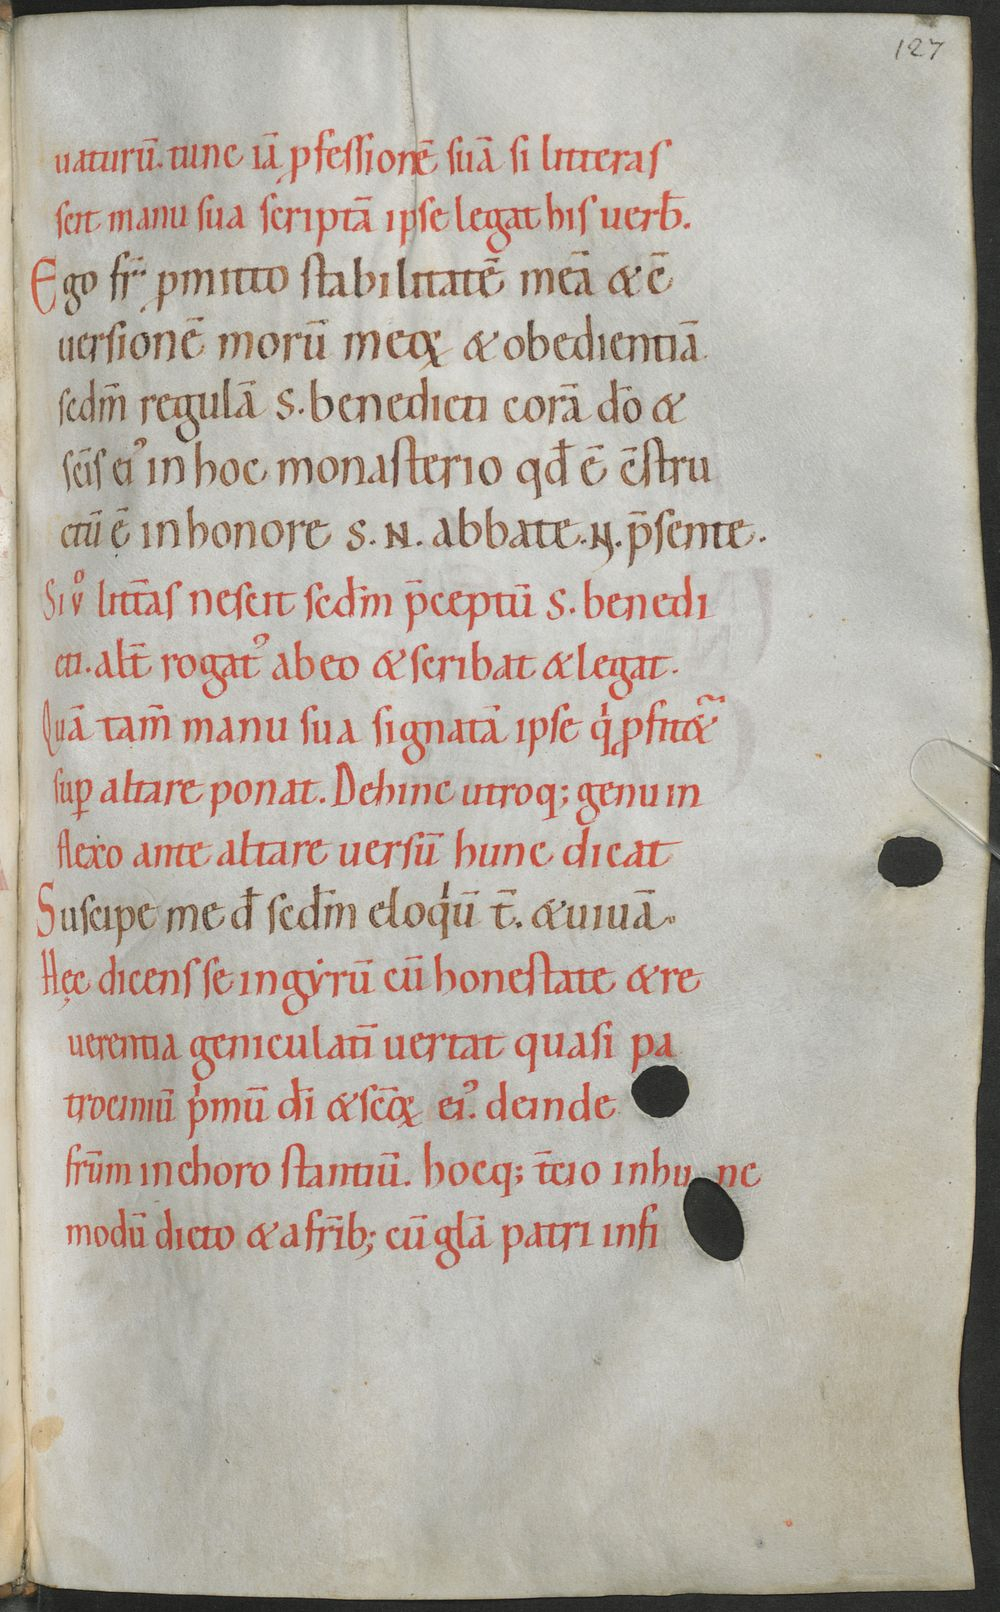 127
uaturū. tunc iā ꝓfessionē suā si litteras
scit manu sua scriptā ipse legat his uerƀ.
Ego fr̄ ꝓmitto stabilitatē meā & ē
uersionē morū meoꝝ & obedientiā
scdm̄ regulā S. benedicti corā dō &
scīs ei᾽ in hoc monasterio qđ ē ēstru
ctū ē in honore S. N. abbate. N. p̄sente.
Si v̊ litt̄as nescit scdm̄ p̄ceptū S. benedi
cti. alt̄ rogat᾽ ab eo & scribat & legat.
Quā tam̄ manu sua signatā ipse qͥ ꝓfit&᷑
sup̱ altare ponat. Dehinc utroq; genu in
flexo ante altare uersū hunc dicat
Suscipe me đ scdm̄ eloqͥū t̄. & uiuā.
Hęc dicens se in gẏrū cū honestate & re
uerentia geniculatī uertat quasi pa
trociniū pͥmū dī & scōꝝ ei᾽. deinde
frūm in choro stantiū. hocq; t̄cio in hu nc
modū dicto & a fr̄ib; cū glā patri infi